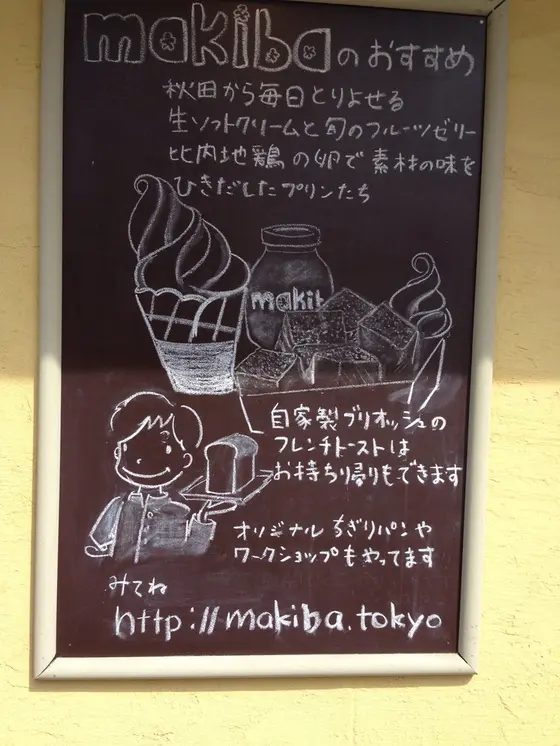 makibaのおすすめ
秋田から毎日とりよせる
生ソフトクリームと旬のフルーツゼリー
比内地鶏の卵で素材の味を
ひきだしたプリンたち
makib
自家製ブリオッシュの
フレンチトーストは
お持ち帰りもできます
オリジナルちぎりパンや
ワークショップもやってます
みてね
http://makiba.tokyo